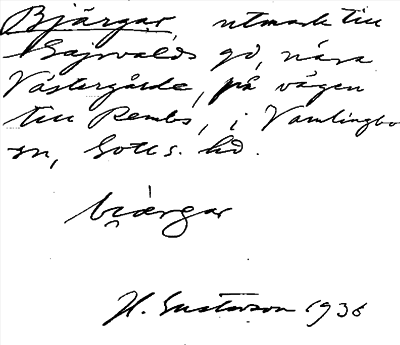 Bjärgar, utmark till
Sajvalds gd, nära
Västergårde, på vägen
till Rembs, i Vamlingbo
sn, Gotl s. hd.
bi̯ærgar
H. Gustavson 1936